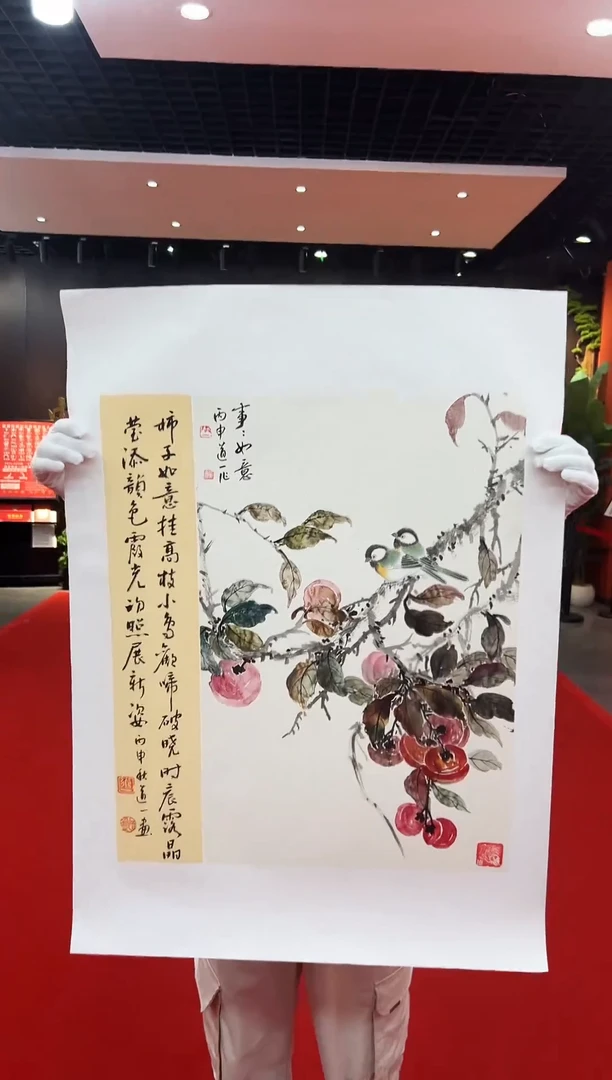 事〻如意
丙申道一作
柿子如意挂高枝小鸟歡啼破晓时辰露晶
莹添韻色霞光初照展新姿丙申秋道一画